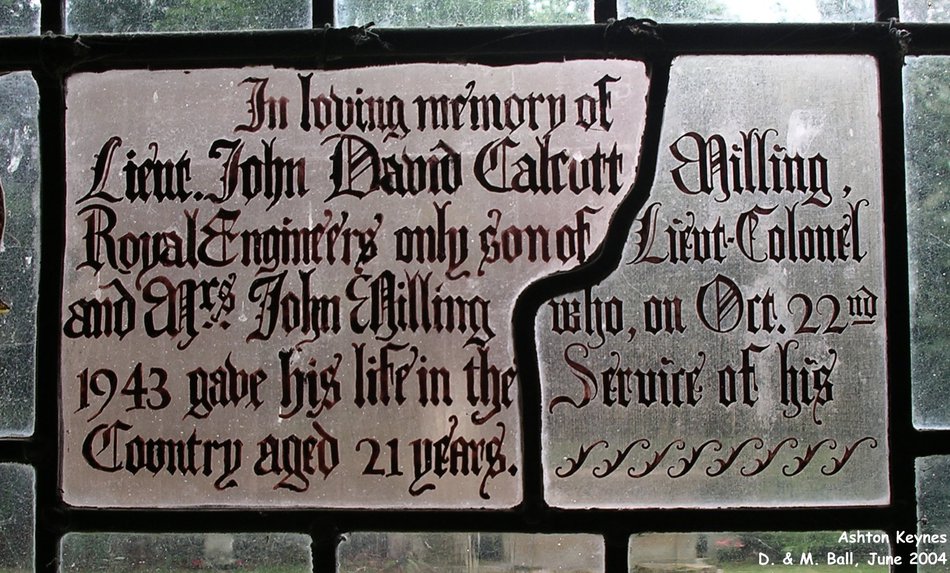 In loving memory of
Lieut. John David Calcutt Milling,
Royal Engineers only son of Lieut-Colonel
and Mrs. John Milling who, on Oct. 22nd
1943 gave his life in the Service of his
Country aged 21 years.
Ashton Keynes
D. & M. Ball, June 2004